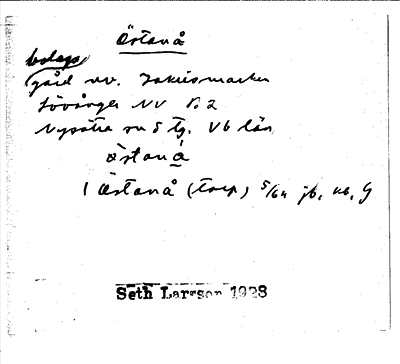 Östanå
bolags
gård nv. Jakiesmarken
Lövånger NV P. 2
Nysätra sn o tg. Vb län
östaná
1 Östanå (torp) 5/64 jb,
Seth Larsson 1928